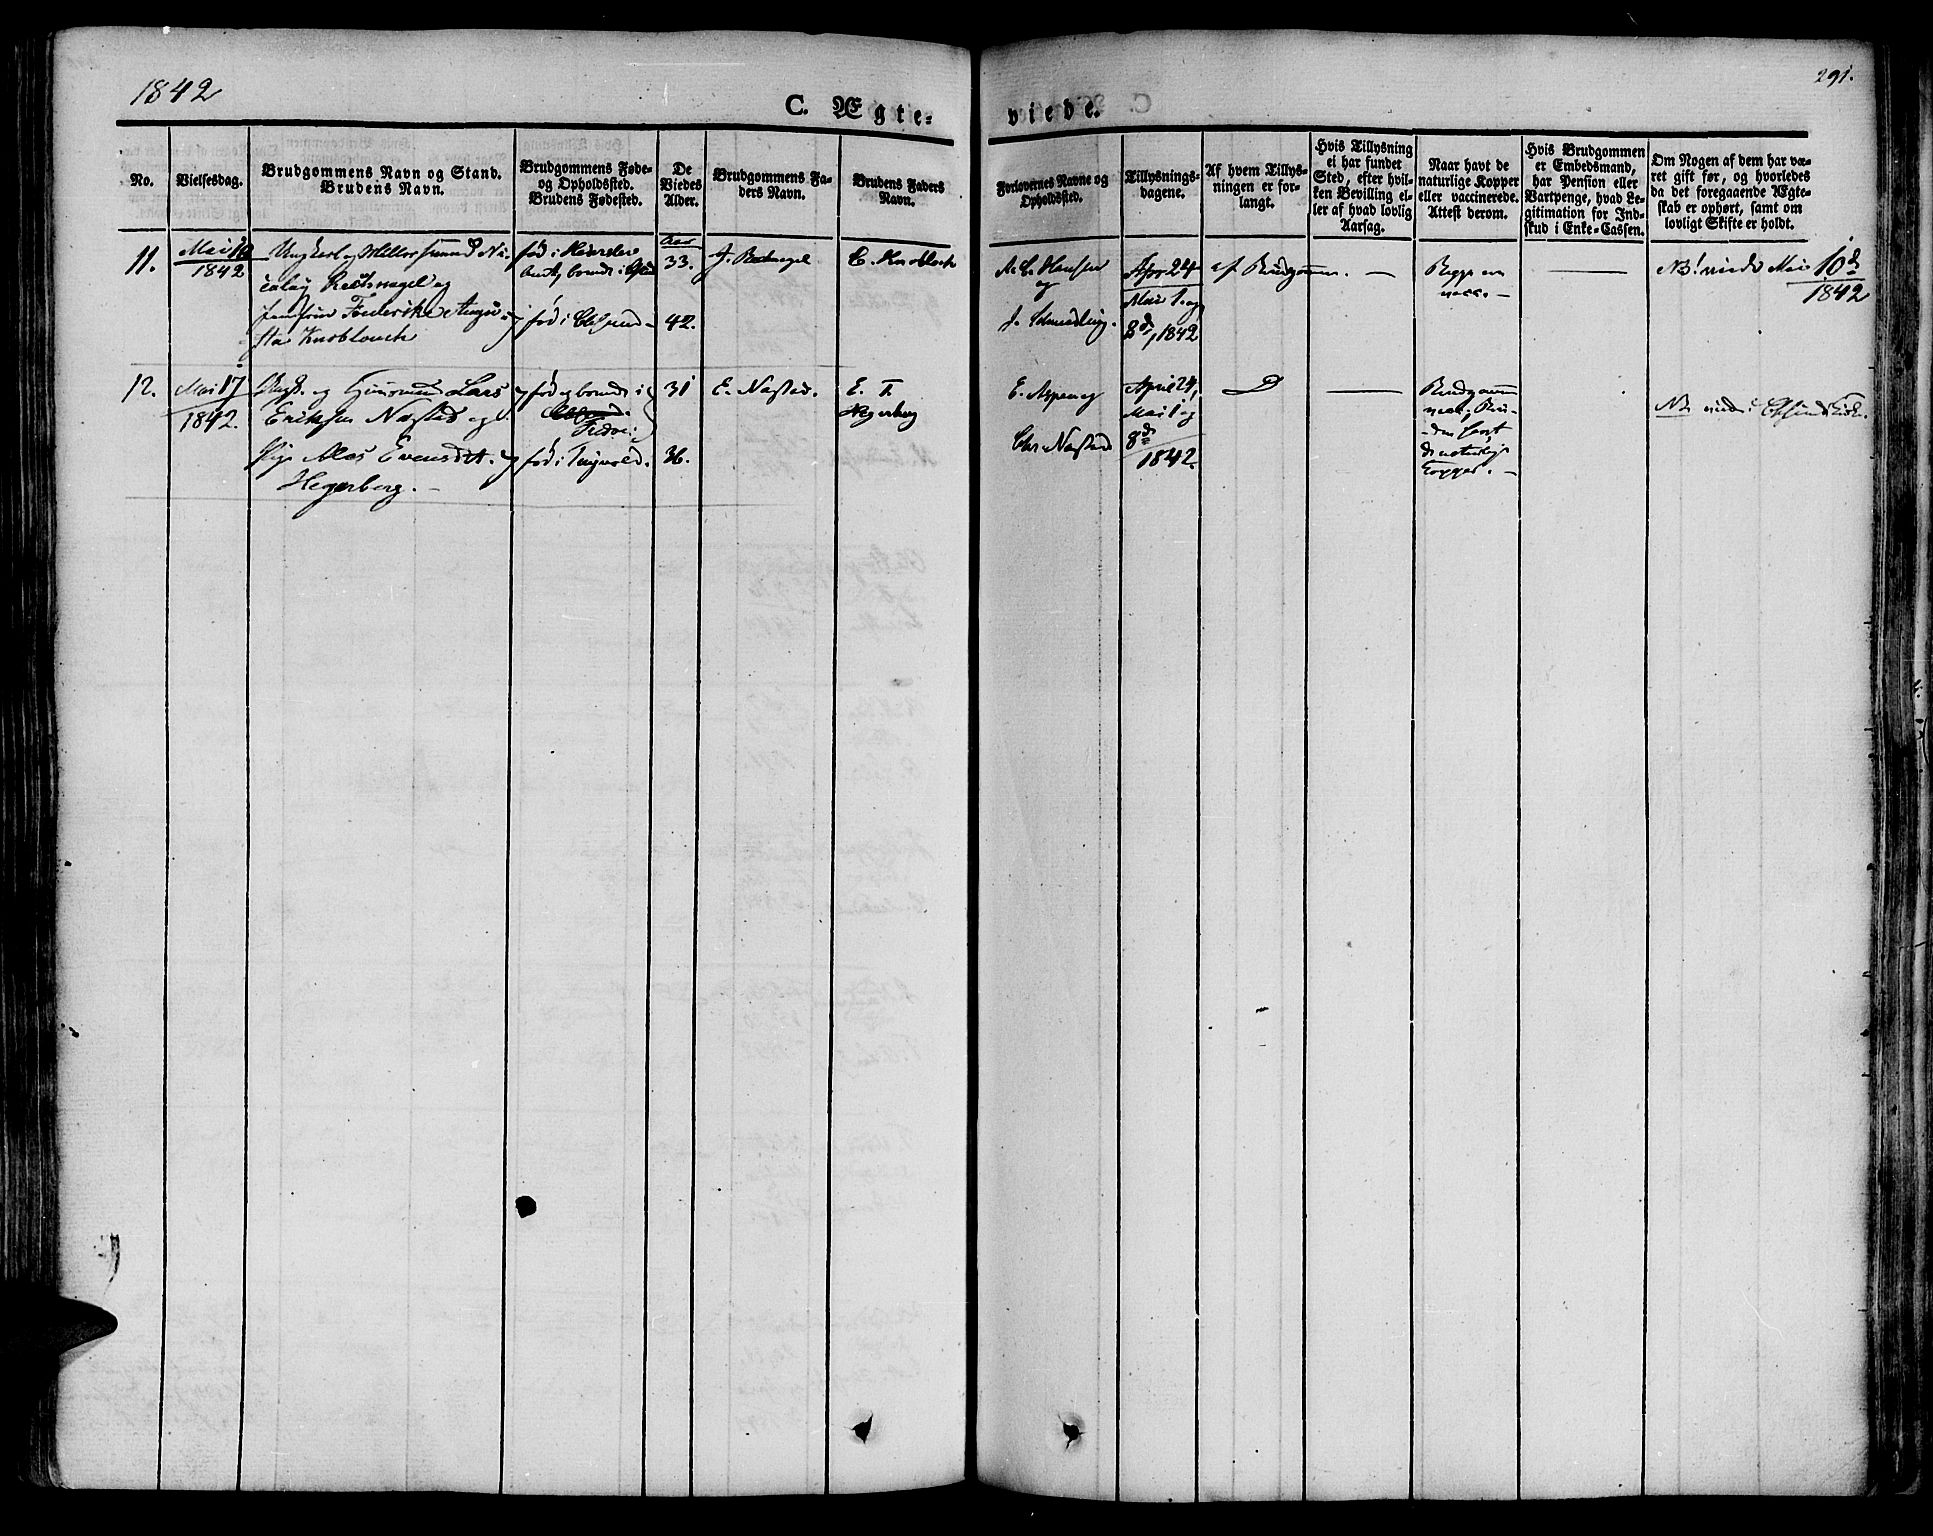 1842
C. Ægte-
viede.
291.
No.
Vielsesdag.
Brudgommens Navn og Stand.
Brudens Navn.
Brudgommens Føde-
og Opholdssted.
Brudens Fødested.
De
Viedes
Alder.
Brudgommens Fa-
ders Navn.
Brudens Faders
Navn.
Forlovernes Navne og
Opholdssted.
Tillysnings-
dagene.
Af hvem Tillys-
ningen er for-
langt.
Hvis Tillysning
ei har fundet
Sted, efter hvil-
ken Bevilling el-
ler af hvad lovlig
Aarsag.
Naar havt de
naturlige Kopper
eller vaccinerede.
Attest derom.
Hvis Brudgommen
er Embedsmand,
har Pension eller
Vartpenge, hvad Le-
gitimation for Ind-
skud i Enke-Cassen.
Om Nogen af dem har væ-
ret gift før, og hvorledes
da det foregaaende Ægte-
skab er ophørt, samt om
lovligt Skifte er holdt.
11.
Mai 10
1842
Ungkarl og
og
Jomfrue Frederikke Augu-
sta Knoblouch
fød i
fød i
Aar
33.
42.
J.
C. Knoblock
A. C. Hansen
og
J. Schmedling.
Apr 24
Mai 1. og
8de, 1842
af Brudgommen. —
Begge
vacc. —
—
NB! viede Mai 10de
1842
12.
Mai 17
1842.
og Lars
Eriksen Nastad og
Pige Evensdt.
Hegerberg. —
fød og boende i
Fredøe:
fød i Tingvold.
31
36.
E. Nastad.
E. T.
Hegerberg
E. Aspen og
Chr Nastad
April 24,
Mai 1 og
8de
1842.
D
—
Brudgommen
vacc, Bru-
den havt
de naturlige
Kopper. —
NB viede i